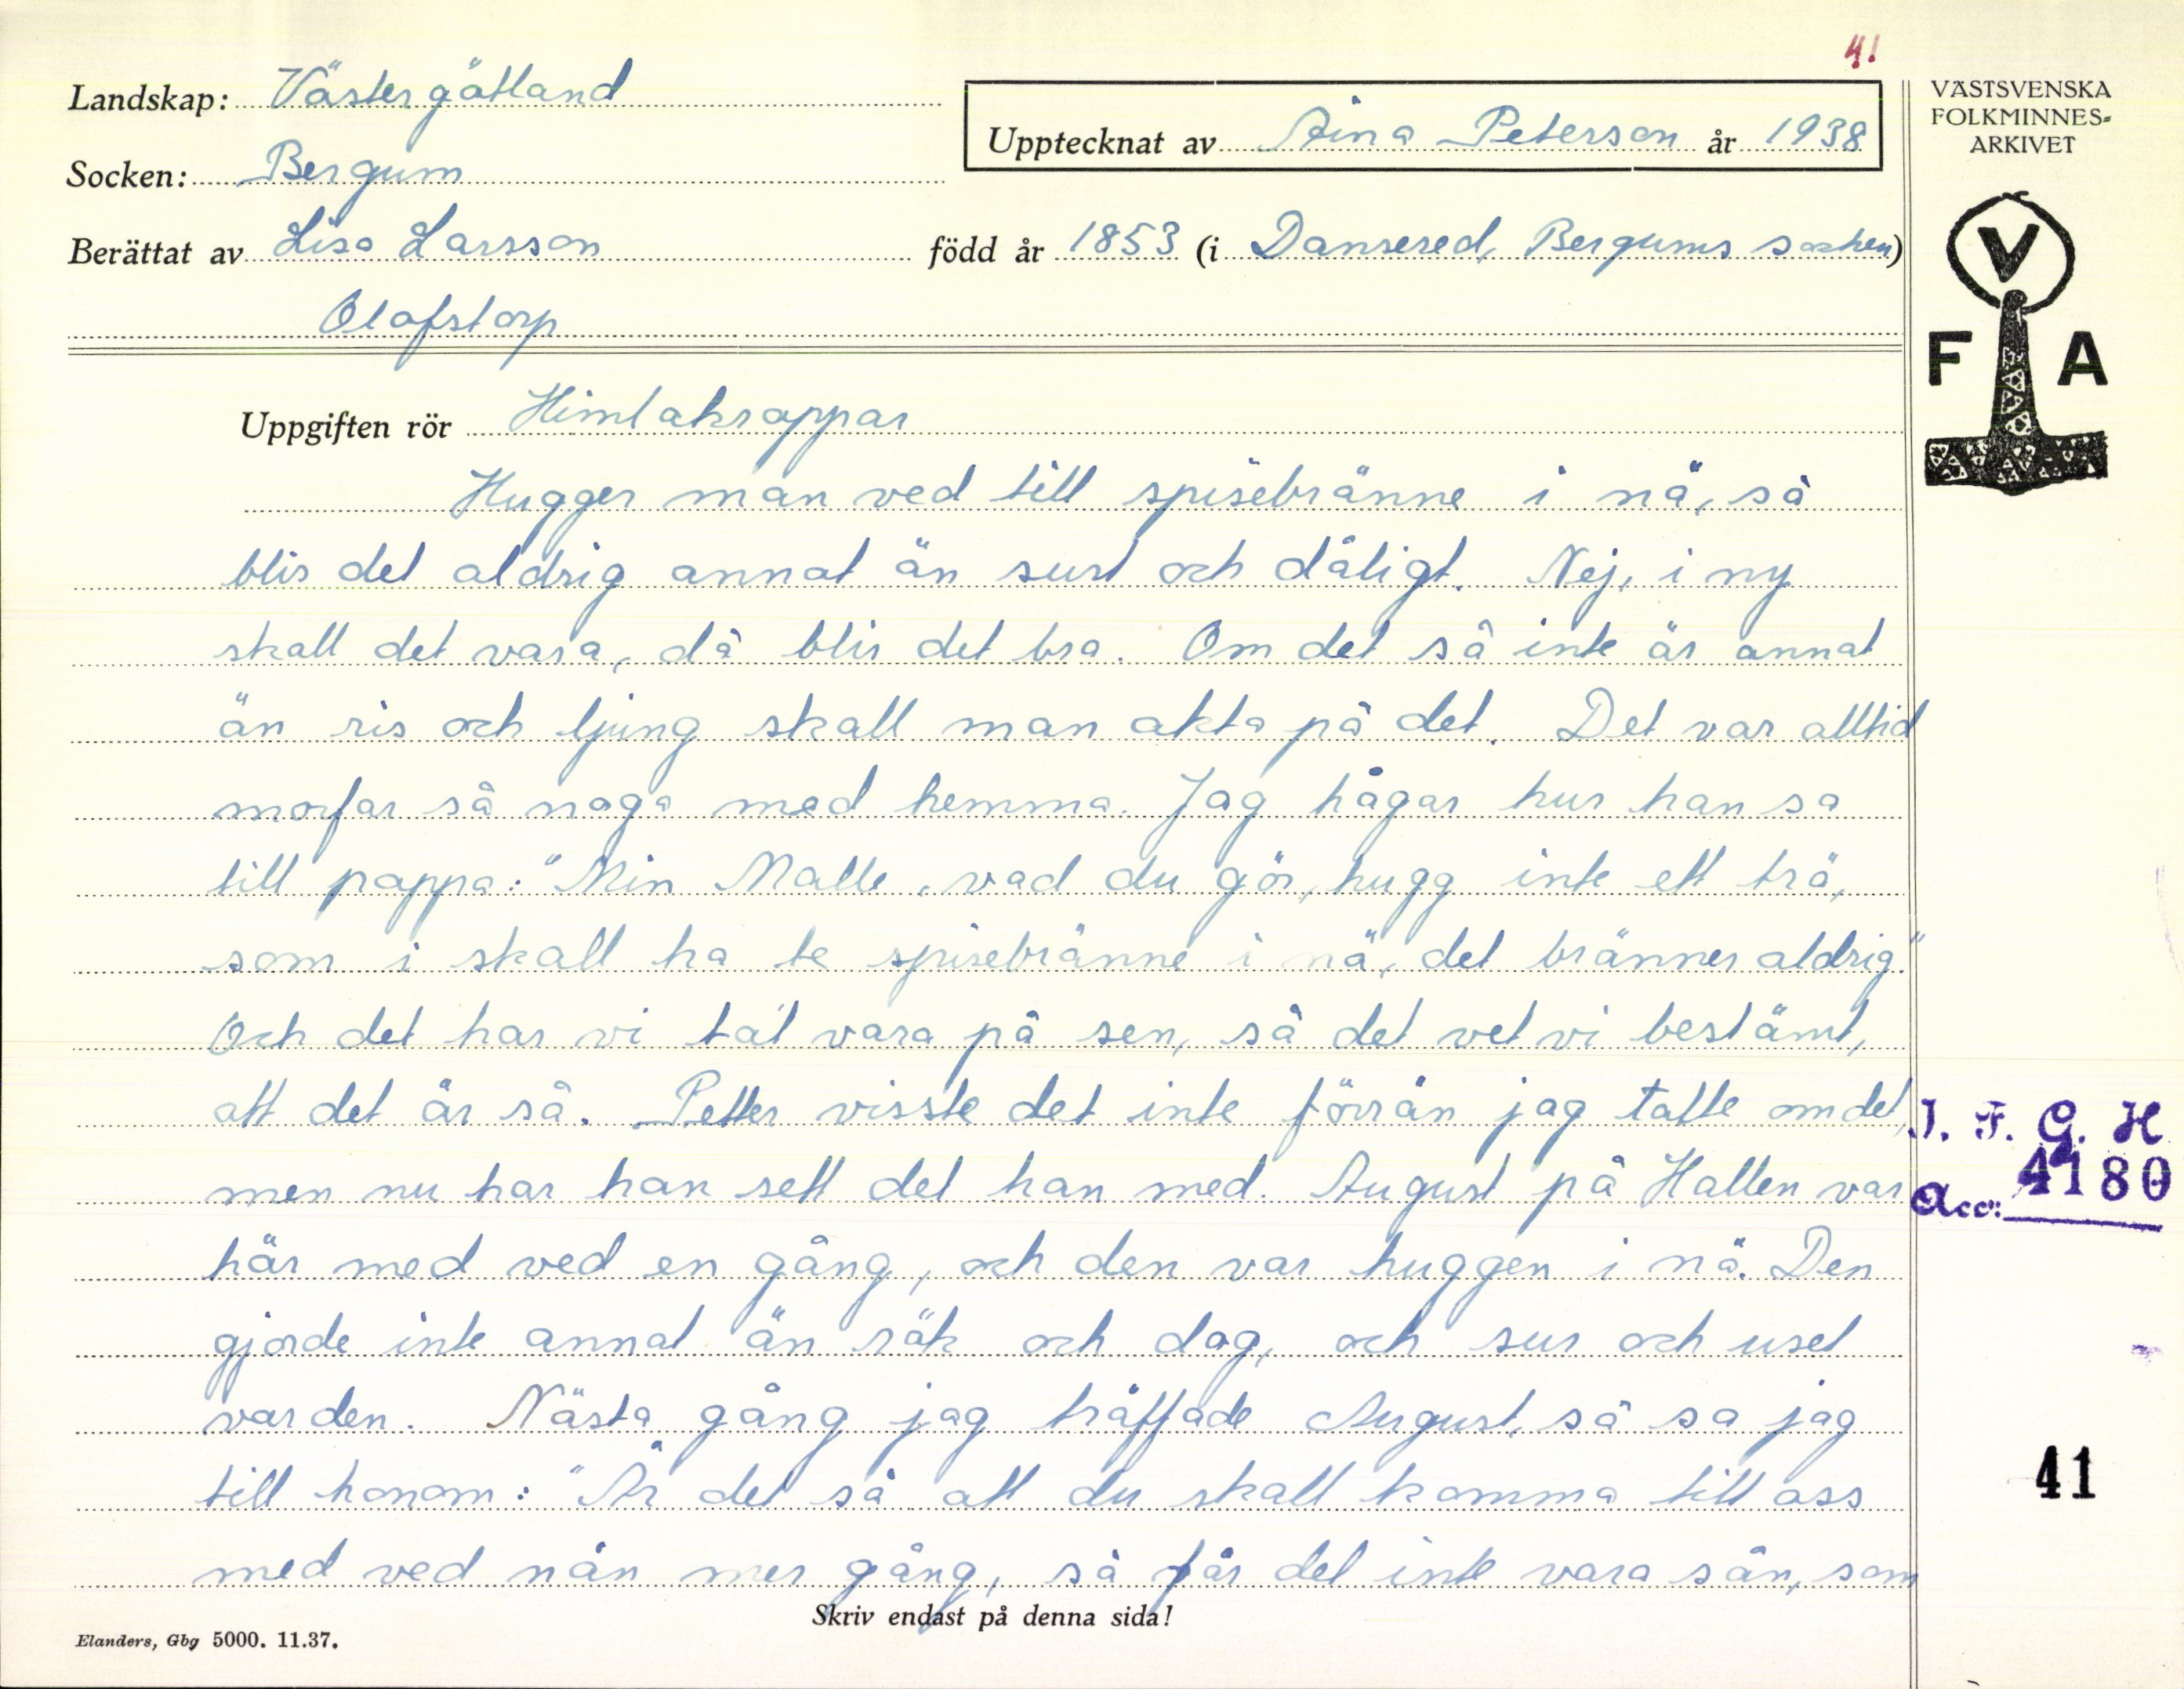 41
Landskap: Västergötland
Upptecknat av Aina Peterson år 1938
Socken: Bergum
Berättat av Lisa Larsson född år 1853 (i Dansered, Bergums socken)
Olofstorp
VÄSTSVENSKA
FOLKMINNES-
ARKIVET
V
F A
Uppgiften rör Himlakroppar
Hugger man ved till spisebränne i nä, så
blir det aldrig annat än surt och dåligt. Nej, i ny
skall det vara, då blir det bra. Om det så inte är annat
än ris och ljung skall man akta på det. Det var alltid
morfar så noga med hemma. Jag hågar hur han sa
till pappa: "Min Malle, vad du gör, hugg inte ett trä,
som i skall ha te spisebränne i nä, det bränner aldrig."
Och det har vi tat vara på sen, så det vet vi bestämt,
att det är så. Petter visste det inte förrän jag talte om det,
men nu har han sett det han med. August på Hallen var
här med ved en gång, och den var huggen i nä. Den
gjorde inte annat än rök och dog, och sur och usel
var den. Nästa gång jag träffade August, så sa jag
till honom: "Är det så att du skall komma till oss
med ved nån mer gång, så får det inte vara sån, som
Skriv endast på denna sida!
Elanders, Gbg 5000. 11.37.
I. F. G. H
Acc: 4180
41